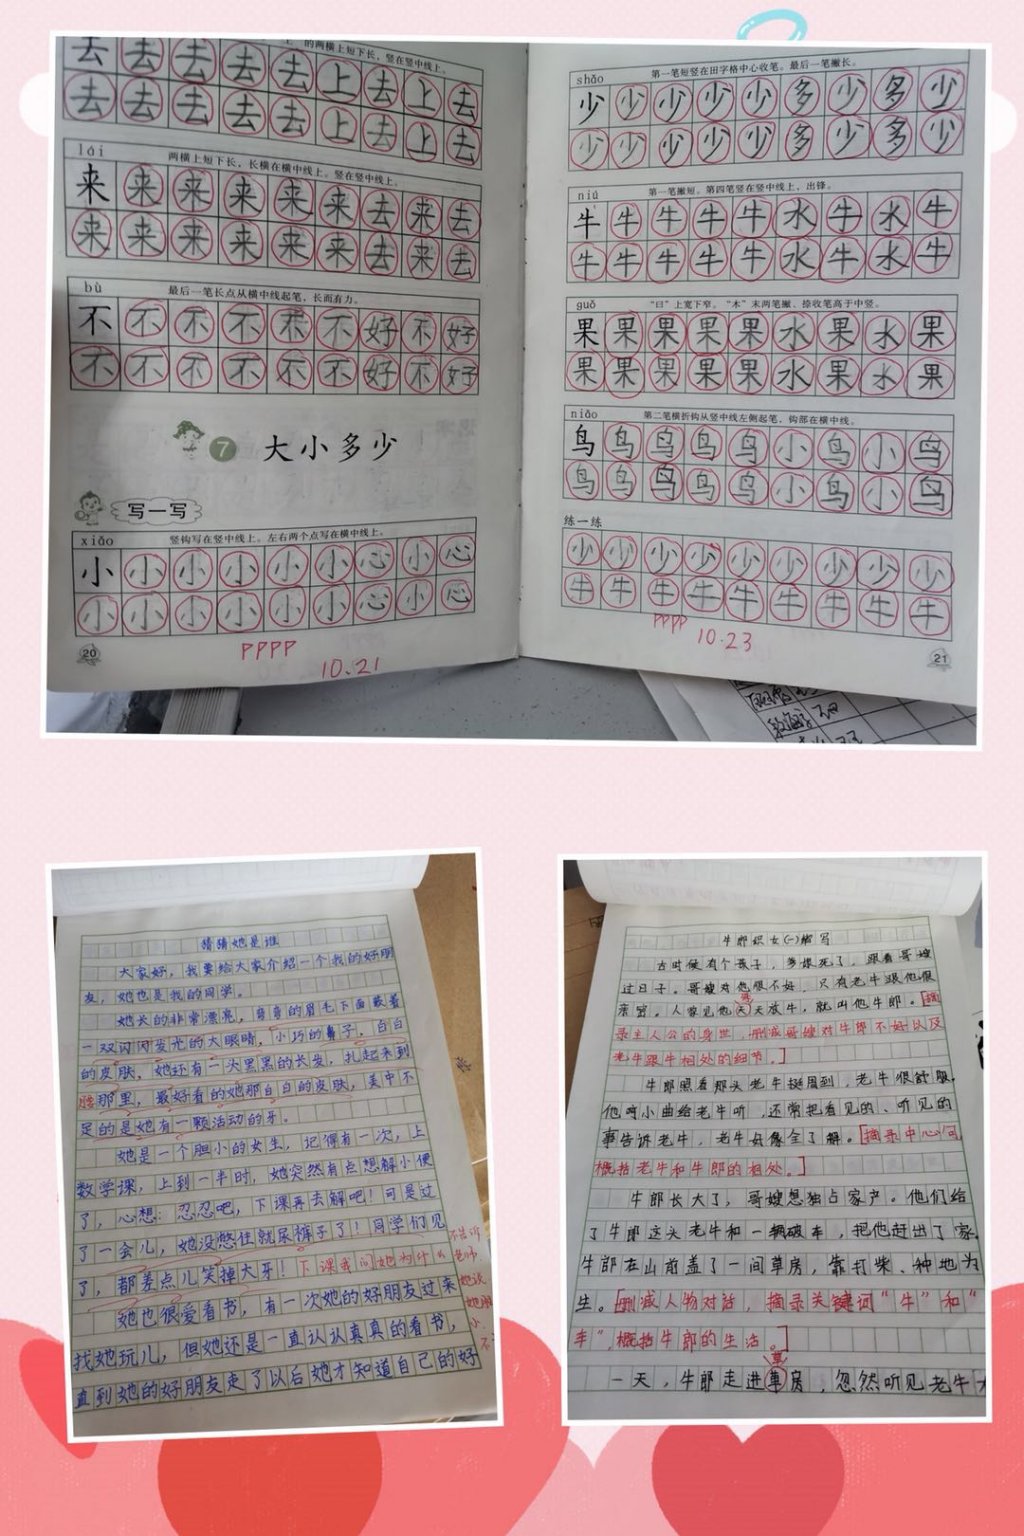 的两横上短下长，竖在竖中线上。
去 去 去 去 去 上 去 上 去
去 去 去 去 去 上 去 上 去
lái
两横上短下长，长横在横中线上。竖在竖中线上。
来 来 来 来 来 来 去 来 去
来 来 来 来 来 来 去 来 去
bù
最后一笔长点从横中线起笔，长而有力。
不 不 不 不 不 不 好 不 好
不 不 不 不 不 不 好 不 好
7 大小多少
写一写
xiǎo
竖钩写在竖中线上。左右两个点写在横中线上。
小 小 小 小 小 小 心 小 心
小 小 小 小 小 小 心 小 心
PPPP
10.21
20
shǎo
第一笔短竖在田字格中心收笔。最后一笔撇长。
少 少 少 少 少 多 少 多 少
少 少 少 少 少 多 少 多 少
niú
第一笔撇短。第四笔竖在竖中线上，出锋。
牛 牛 牛 牛 牛 水 牛 水 牛
牛 牛 牛 牛 牛 水 牛 水 牛
guǒ
“日”上宽下窄。“木”末两笔撇、捺收笔高于中竖。
果 果 果 果 果 水 果 水 果
果 果 果 果 果 水 果 水 果
niǎo
第二笔横折钩从竖中线左侧起笔，钩部在横中线。
鸟 鸟 鸟 鸟 鸟 小 鸟 小 鸟
鸟 鸟 鸟 鸟 鸟 小 鸟 小 鸟
练一练
少 少 少 少 少 少 少 少 少
牛 牛 牛 牛 牛 牛 牛 牛 牛
PPPP
10.23
21
猜猜她是谁
大家好，我要给大家介绍一个我的好朋
友，她也是我的同学。
她长的非常漂亮，弯弯的眉毛下面藏着
一双闪闪发光的大眼睛，小巧的鼻子，白白
的皮肤，她还有一头黑黑的长发，扎起来到
腰那里，最好看的她那白白的皮肤，美中不
足的是她有一颗活动的牙。
她是一个胆小的女生，记得有一次，上
数学课，上到一半时，她突然有点想解小便
了，心想：忍忍吧，下课再去解吧！可是过
了一会儿，她没憋住就尿裤子了！同学们见
了，都差点儿笑掉大牙！下课我问她为什么
不告诉
老师
她说
她胆
小
不
她也很爱看书，有一次她的好朋友过来
找她玩儿，但她还是一直认认真真的看书，
直到她的好朋友走了以后她才知道自己的好
牛郎织女(一)缩写
古时候有个孩子，爹娘死了，跟着哥嫂
过日子。哥嫂对他很不好，只有老牛跟他很
亲密。人家见他天天放牛，就叫他牛郎。[摘
录主人公的身世，删减哥嫂对牛郎不好以及
老牛跟牛相处的细节。]
牛郎照看那头老牛挺周到，老牛很舒服。
他哼小曲给老牛听，还常把看见的、听见的
事告诉老牛，老牛好像全了解。[摘录中心句
概括老牛和牛郎的相处。]
牛郎长大了，哥嫂想独占家产。他们给
了牛郎这头老牛和一辆破车，把他赶出了家。
牛郎在山前盖了一间草房，靠打柴、种地为
生。[删减人物对话，摘录关键词“牛”和“
车”，概括牛郎的生活。]
草
一天，牛郎走进草房，忽然听见老牛